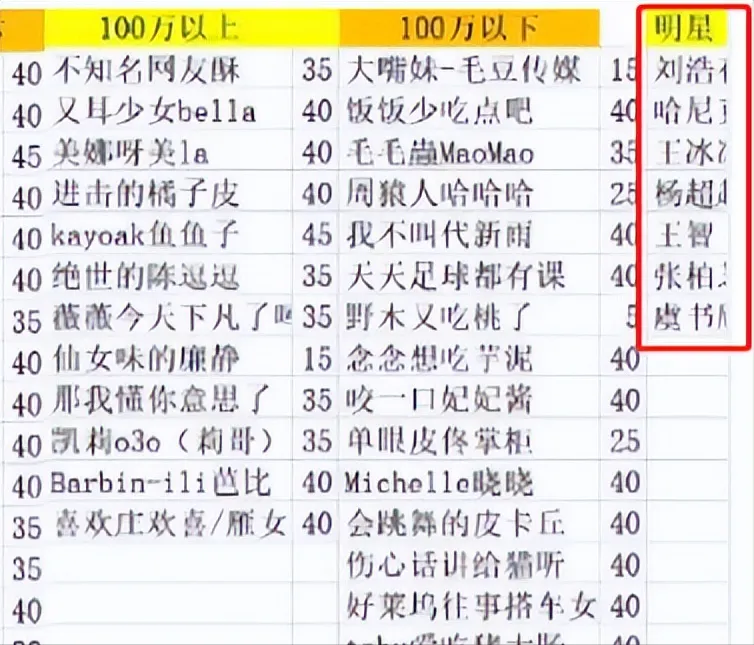 100万以上 100万以下 明星
40 不知名网友酥 35 大嘴妹-毛豆传媒 15 刘浩
40 又耳少女bella 40 饭饭少吃点吧 40 哈尼
45 美娜呀美la 40 毛毛蟲MaoMao 35 王冰
40 进击的橘子皮 40 周狼人哈哈哈 25 杨超
40 kayoak鱼鱼子 45 我不叫代新雨 40 王智
40 绝世的陈逗逗 35 天天足球都有课 40 张柏
35 薇薇今天下凡了 35 野木又吃桃了 5 虞书
40 仙女味的廉静 15 念念想吃芋泥 40
40 那我懂你意思了 35 咬一口妃妃酱 40
40 凯莉o3o（莉哥） 35 单眼皮佟掌柜 25
40 Barbin-ili芭比 40 Michelle晓晓 40
35 喜欢庄欢喜/雁女 40 会跳舞的皮卡丘 40
35 伤心话讲给猫听 40
40 好莱坞往事搭车女 40